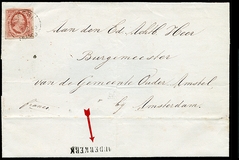 Aan den Ed Achtb Heer
Burgemeester
van de Gemeente Ouder Amstel,
Franco
bij Amsterdam.
NDERKERK